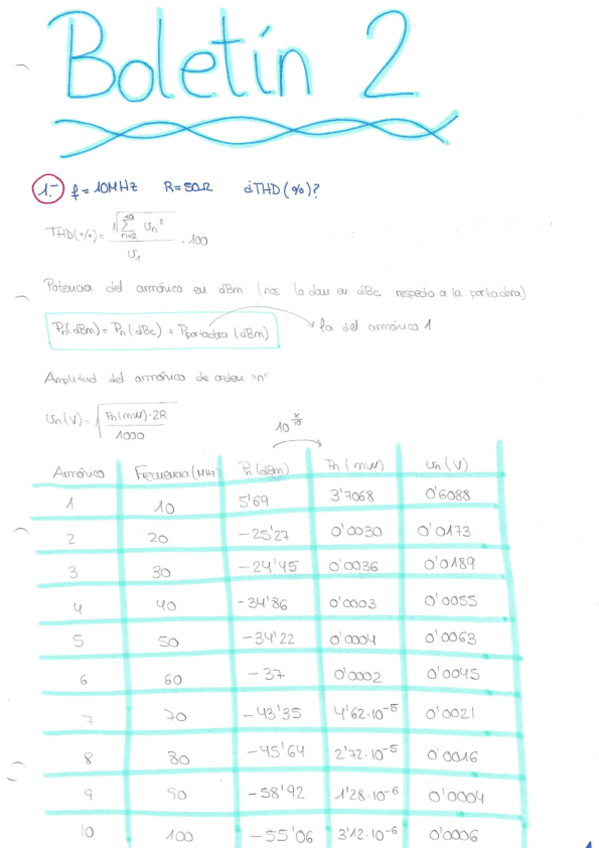 Boletín 2
1.- f = 10MHz R = 50Ω ¿THD(%)?
THD(%) = √(∑ n=2 10 Un²) / U1 · 100
Potencia del armónico en dBm (nos lo dan en dBc respecto a la portadora)
Pn(dBm) = Pn(dBc) + Pportadora (dBm) → la del armónico 1
Amplitud del armónico de orden "n"
Un(V) = √(Pn(mW)·2R / 1000)
10^(x/10)
Armónico Frecuencia (MHz) Pn (dBm) Pn (mW) Un (V)
1 10 5'69 3'7068 0'6088
2 20 -25'27 0'0030 0'0173
3 30 -24'45 0'0036 0'0189
4 40 -34'86 0'0003 0'0055
5 50 -34'22 0'0004 0'0063
6 60 -37 0'0002 0'0045
7 70 -43'35 4'62·10⁻⁵ 0'0021
8 80 -45'64 2'72·10⁻⁵ 0'0016
9 90 -58'92 1'28·10⁻⁶ 0'0004
10 100 -55'06 3'12·10⁻⁶ 0'0006